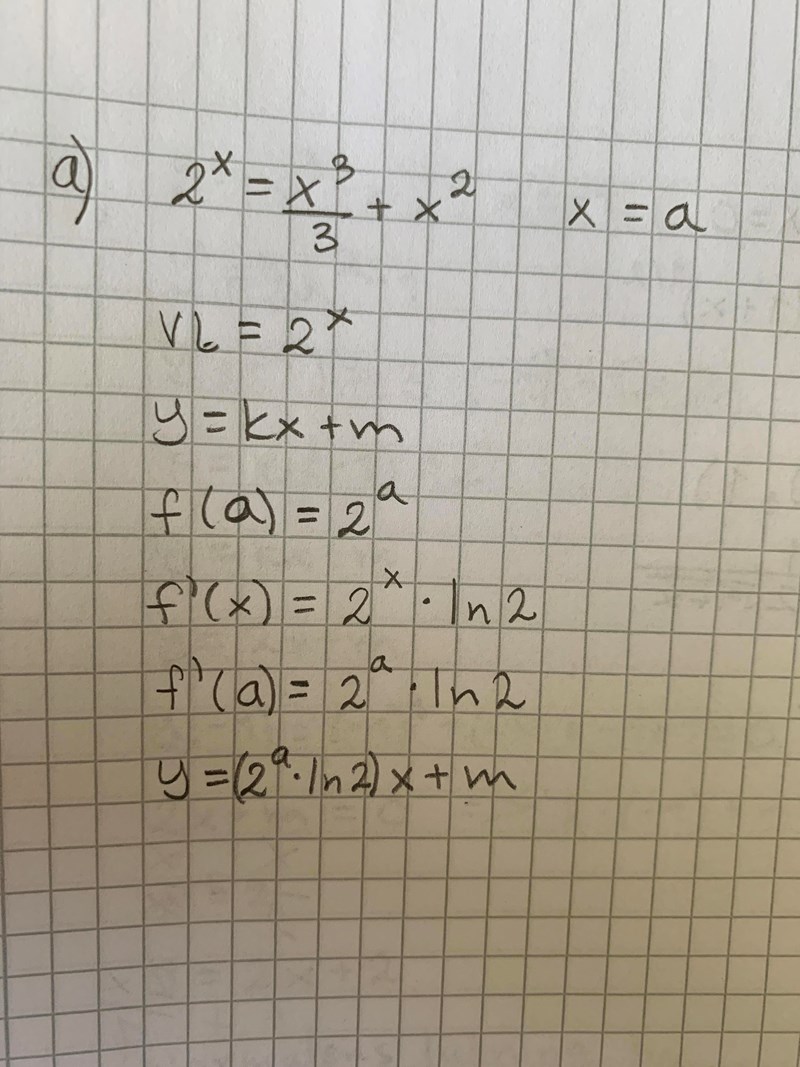 a) 2^x = x^3/3 + x^2 x = a
VL = 2^x
y = kx + m
f(a) = 2^a
f'(x) = 2^x · ln 2
f'(a) = 2^a · ln 2
y = (2^a · ln 2) x + m